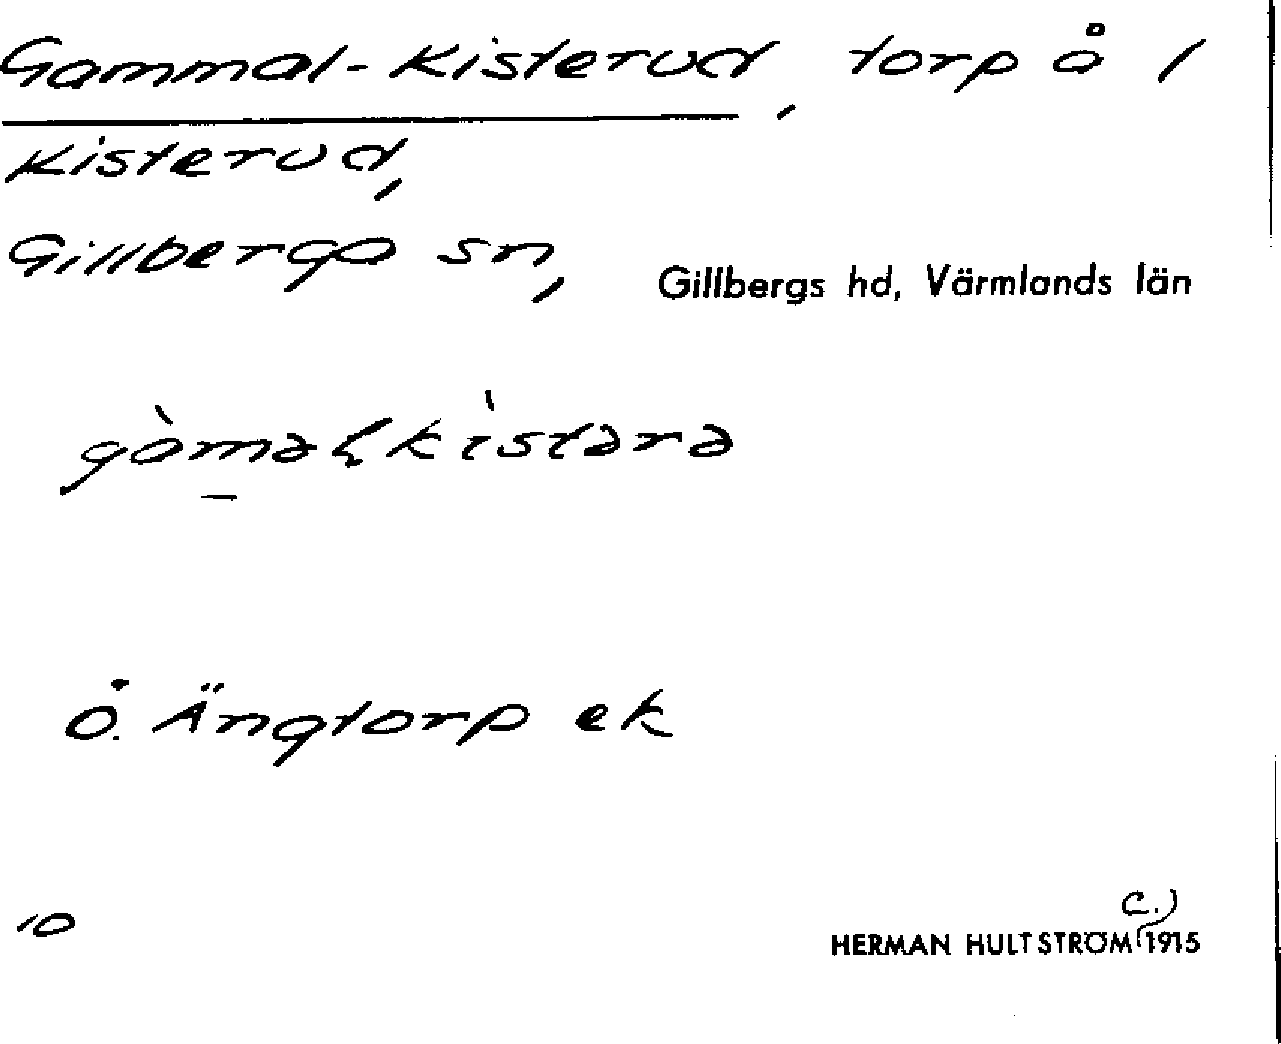 Gammal-Kisterud, torp å 1
Kisterud,
Gillberga sn, Gillbergs hd, Värmlands län
gàmaɭkìstərə
Ö. Ängtorp ek
10
C.)
HERMAN HULTSTRÖM 1915